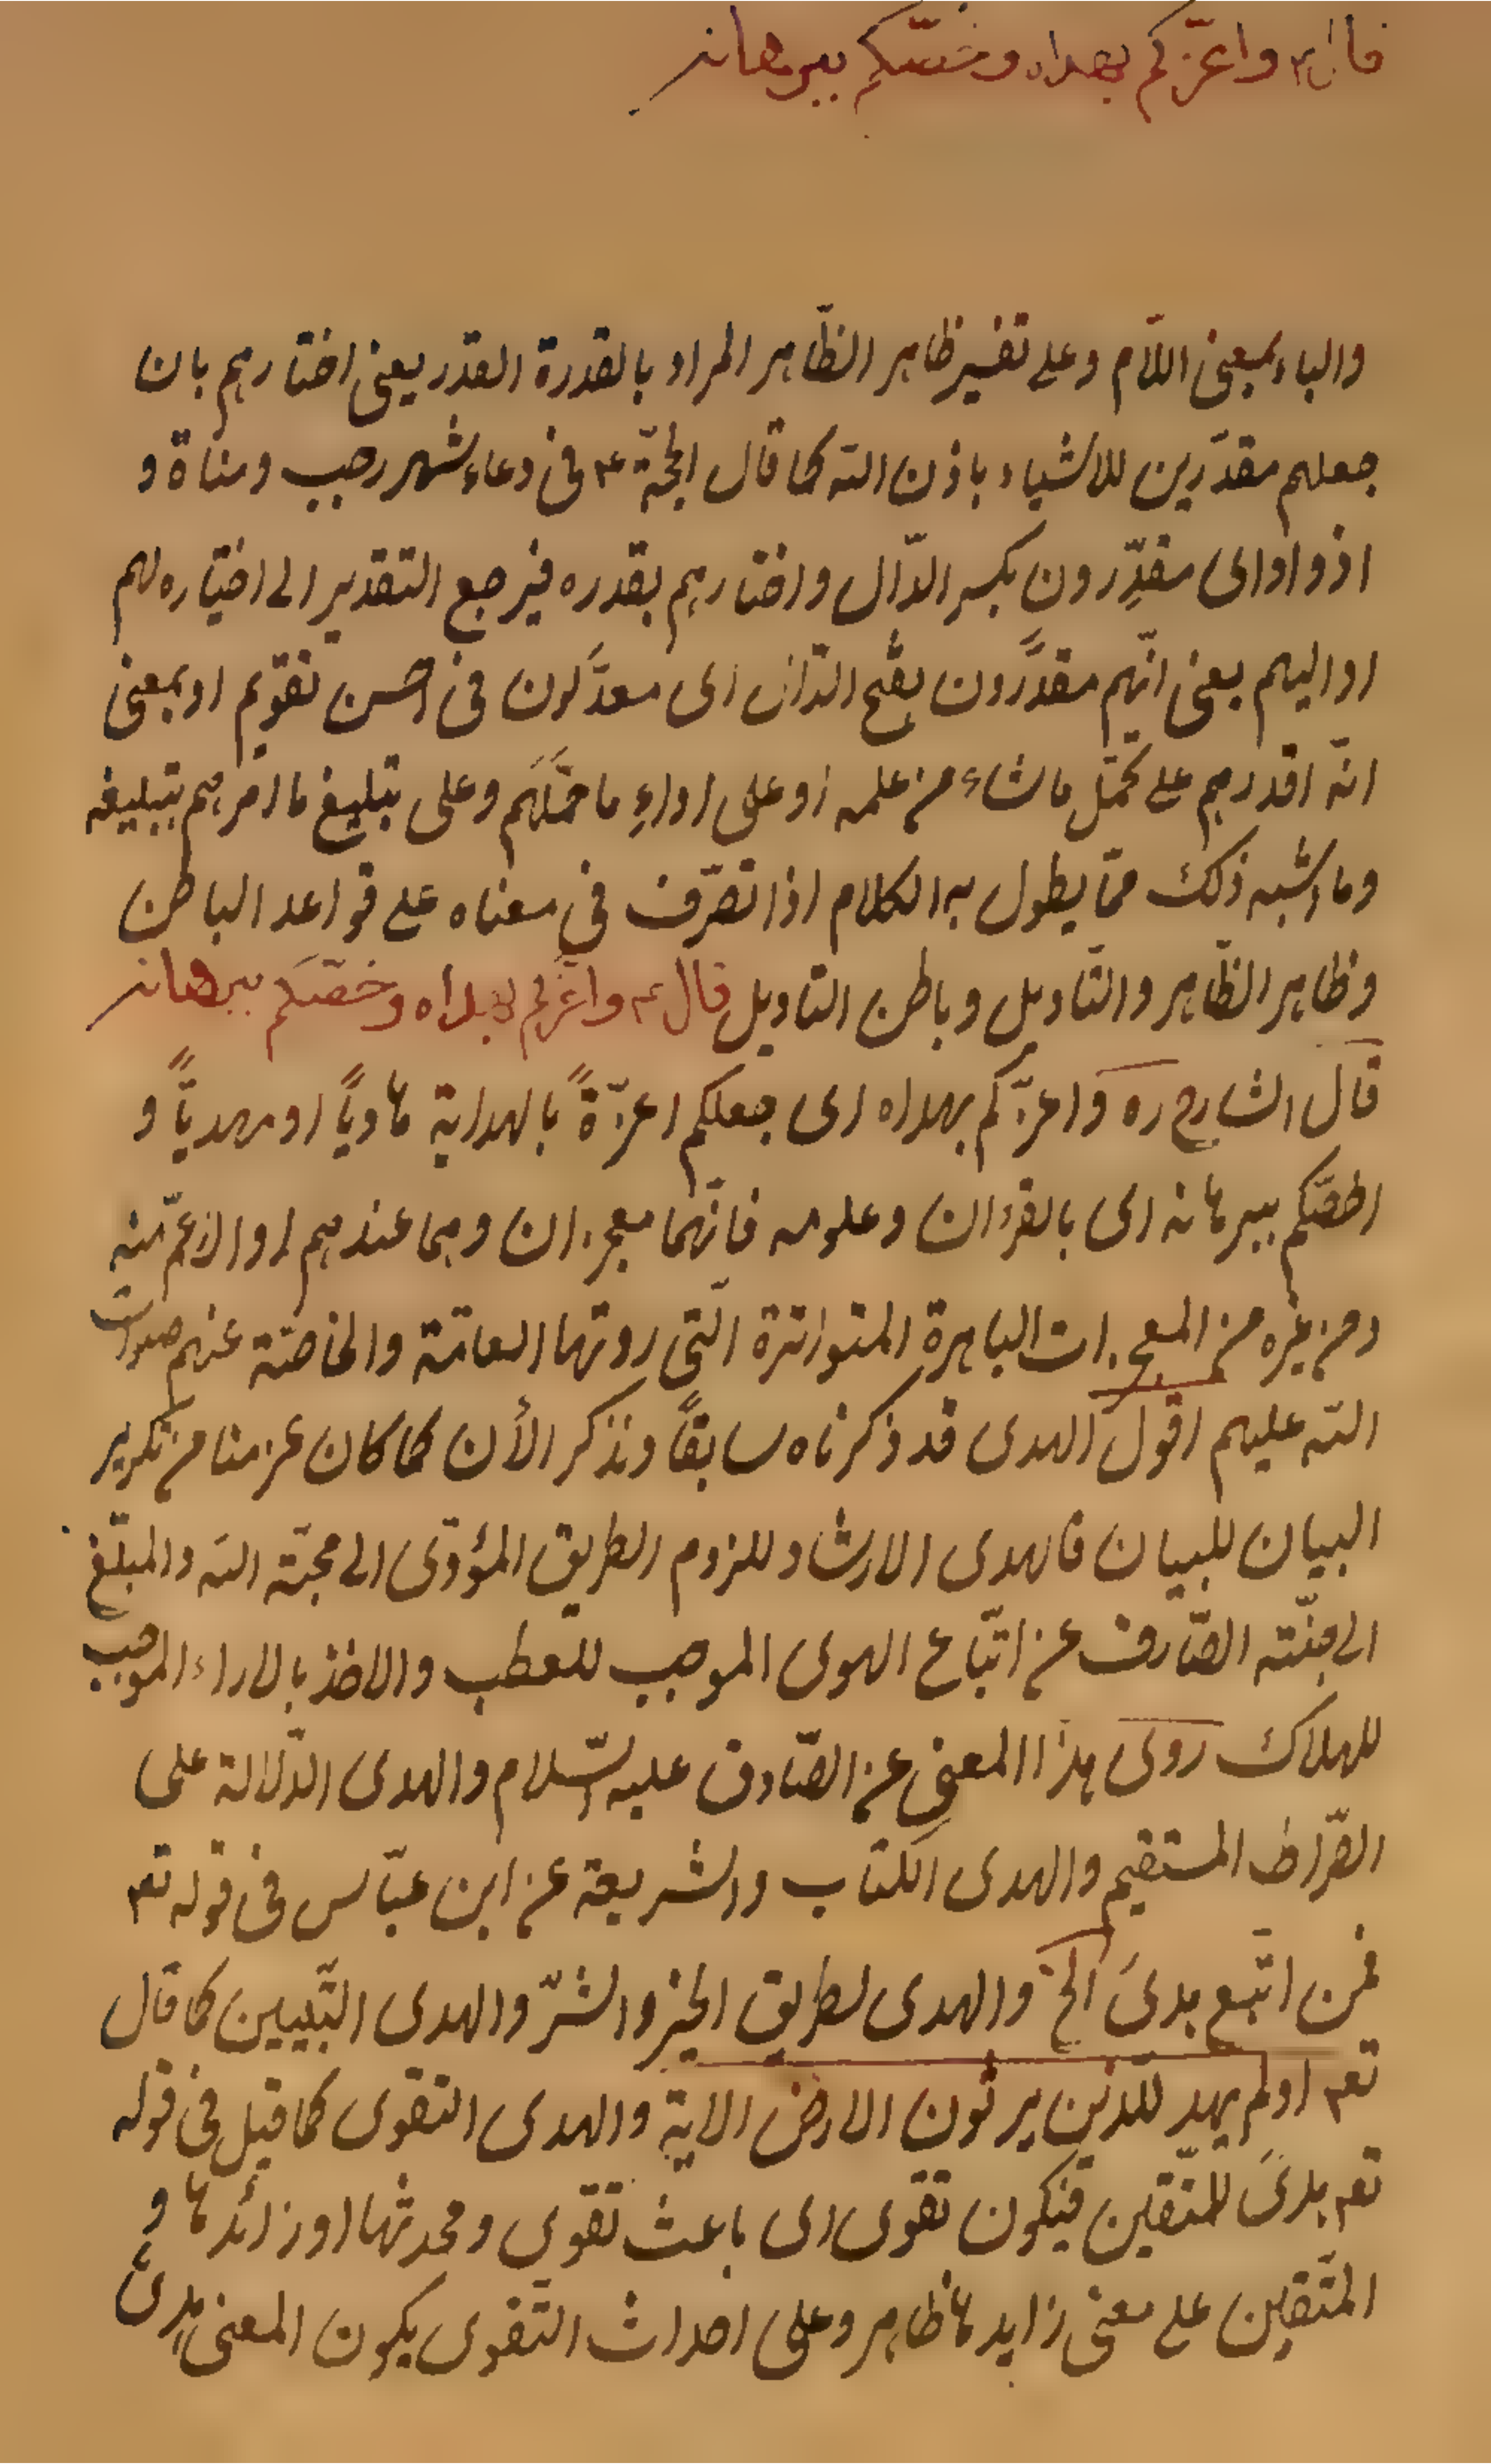 قال ۴ واعزّكم بهداه وخصّكم ببرهانه
والباء بمعنى اللّام وعلى تفسير ظاهر الظّاهر المراد بالقدرة القدر يعنى اختارهم بان
جعلهم مقدّرين للاشياء باذن اللّه كما قال الحجّة ۴ فى دعاء شهر رجب ومناة و
اذوادا اى مقدِّرون بكسر الدّال واختارهم بقدره فيرجع التقدير الى اختياره لهم
او اليهم يعنى انّهم مقدَّرون بفتح الدّال اى معدَّلون فى احسن تقويم او بمعنى
انّه اقدرهم على تحمّل ما شاء من علمه او على اداءِ ما حمّلهم وعلى تبليغ ما امرهم بتبليغه
وما اشبه ذلك ممّا يطول به الكلام اذا تصرّف فى معناه على قواعد الباطن
وظاهر الظّاهر والتّاويل وباطن التاويل قال ۴ واعزّكم بهداه وخصّكم ببرهانه
قال الشارح ره واعزّكم بهداه اى جعلكم اعزّةً بالهداية هاديًا او مهديًّا و
اختصّكم ببرهانه اى بالقرءان وعلومه فانّهما معجزان وهما عندهم او الاعمّ منه
ومن غيره من المعجزات الباهرة المتواترة الّتى روتها العامّة والخاصّة عنهم صلوات
اللّه عليهم اقول الهدى قد ذكرناه سابقًا ونذكر الأن كما كان عزمنا من تكرير
البيان للبيان فالهدى الارشاد للزوم الطريق المؤدّى الى محبّة اللّه والمبلّغ
الى جنّته الصّارف عن اتّباع الهوى الموجب للعطب والاخذ بالاراء الموجب
للهلاك روى هذا المعنى عن الصّادق عليه السّلام والهدى الدّلالة على
الصّراط المستقيم والهدى الكتاب والشريعة عن ابن عبّاس فى قوله تعـ
فمن اتّبع هدىَ الخ والهدى لطريق الخير والشرّ والهدى التّبيين كما قال
تعـ اولم يهد للّذين يرثون الارض الاية والهدى التقوى كما قيل فى قوله
تعـ هدىً للمتّقين فيكون تقوى اى باعث تقوى ومحدثها او زائدها و
المتّقين على معنى زايدها ظاهر وعلى احداث التّقوى يكون المعنى هدىً